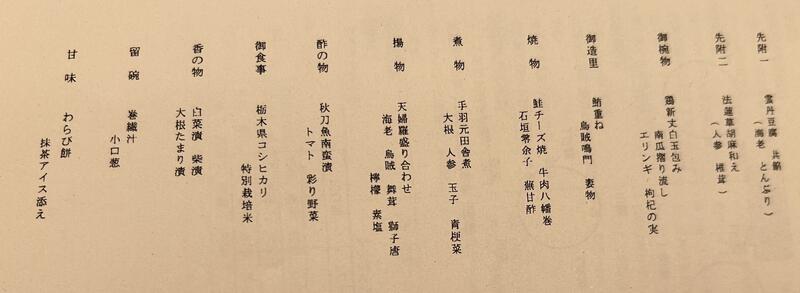 先附一 雲丹豆腐 共餡
(海老 とんぶり)
先附二 法蓮草胡麻和え
(人参 椎茸)
御椀物 鶏新丈白玉包み
南瓜摺り流し
エリンギ 枸杞の実
御造里 鮪重ね
烏賊鳴門 妻物
焼物 鮭チーズ焼 牛肉八幡巻
石垣零余子 蕪甘酢
煮物 手羽元田舎煮
大根 人参 玉子 青梗菜
揚物 天婦羅盛り合わせ
海老 烏賊 舞茸 獅子唐
檸檬 素塩
酢の物 秋刀魚南蛮漬
トマト 彩り野菜
御食事 栃木県コシヒカリ
特別栽培米
香の物 白菜漬 柴漬
大根たまり漬
留椀 巻繊汁
小口葱
甘味 わらび餅
抹茶アイス添え